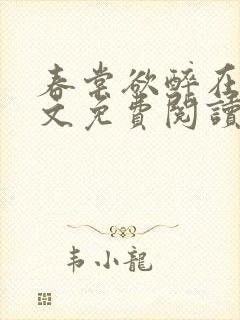 春棠欲醉在
文免費閱讀
韦小龍